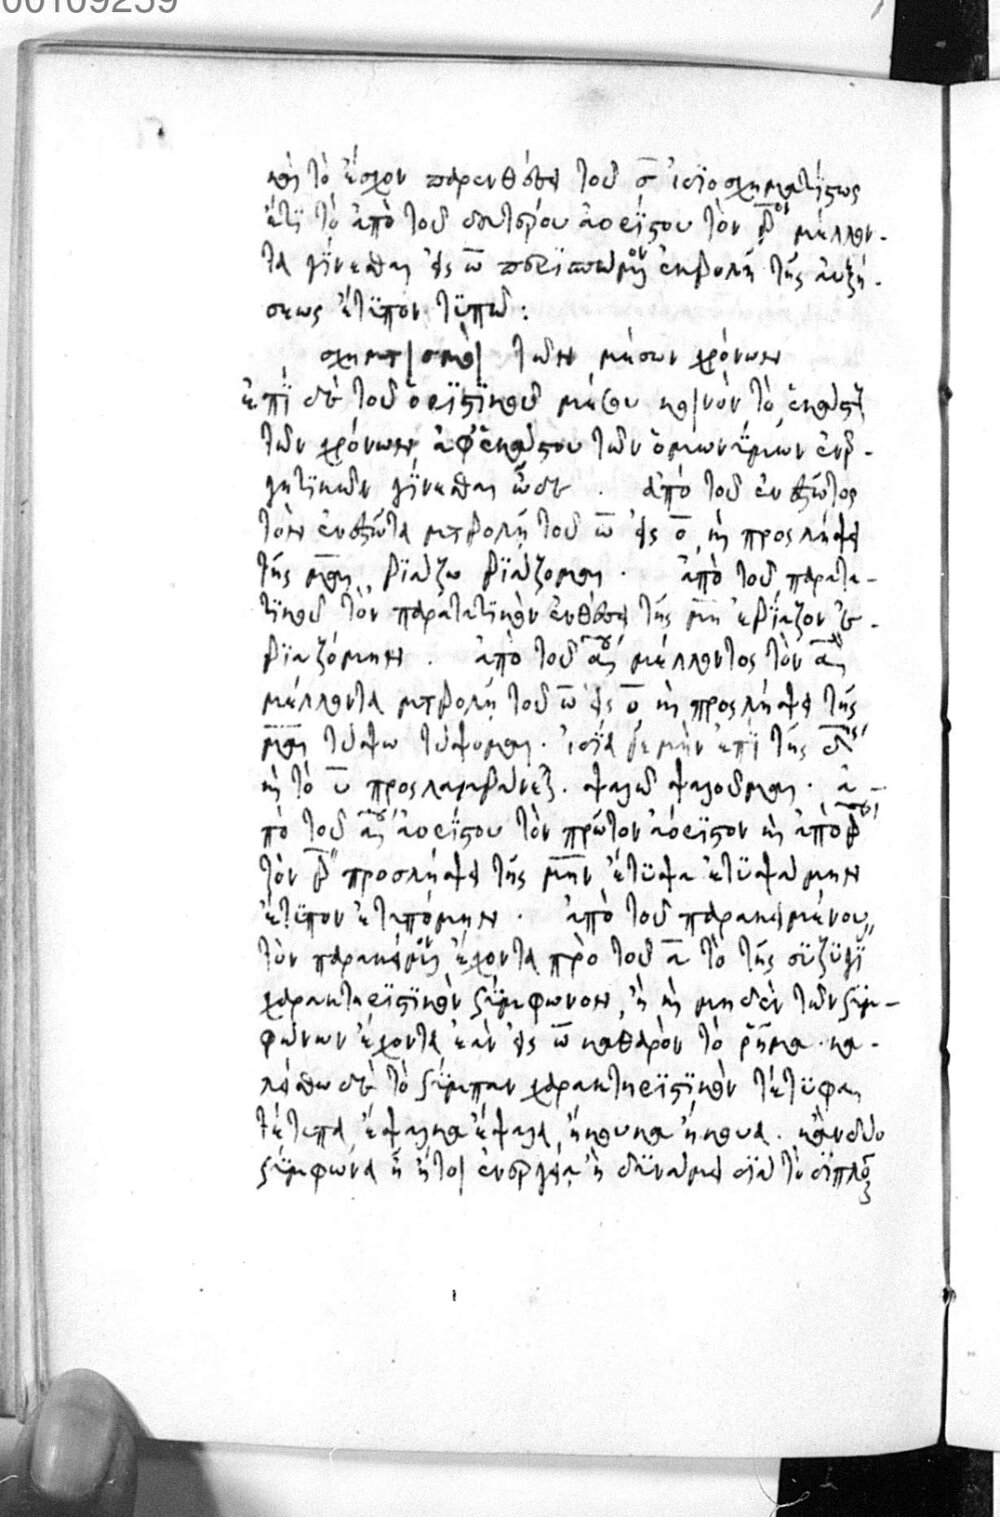 00109259
καὶ τὸ ἔσχον παρενθέσει τοῦ σ̅ ἰδιοσχηματίστως
ἔτι τὸ ἀπὸ τοῦ δευτέρου ἀορίστου τὸν β̅ον μέλλον-
τα γίνεσθαι εἰς ω̅ περισπώμενον ἐκβολῇ τῆς αὐξή-
σεως ἔτυπον τυπῶ:
σχηματισμοὶ τῶν μέσων χρόνων
ἐπὶ δὲ τοῦ ὁριστικοῦ μέσου κοινὸν τὸ ἕκαστον
τῶν χρόνων ἀφ' ἑκάστου τῶν ὁμωνύμων ἐνερ-
γητικῶν γίνεσθαι ὧδε . ἀπὸ τοῦ ἐνεστῶτος
τὸν ἐνεστῶτα μεταβολῇ τοῦ ω̅ εἰς ο̅ καὶ προσλήψει
τῆς μαι βιάζω βιάζομαι . ἀπὸ τοῦ παρατα-
τικοῦ τὸν παρατατικὸν ἐνθέσει τῆς μη ἐβίαζον ἐ-
βιαζόμην . ἀπὸ τοῦ α̅ου μέλλοντος τὸν α̅ον
μέλλοντα μεταβολῇ τοῦ ω̅ εἰς ο̅ καὶ προσλήψει τῆς
μαι τύψω τύψομαι . ἰδίᾳ δὲ μὴν ἐπὶ τῆς ε̅ης
καὶ τὸ υ̅ προσλαμβάνει . ψαλῶ ψαλοῦμαι . ἀ-
πὸ τοῦ α̅ου ἀορίστου τὸν πρῶτον ἀόριστον καὶ ἀπὸ τοῦ β̅
τὸν β̅ον προσλήψει τῆς μην ἔτυψα ἐτυψάμην
ἔτυπον ἐτυπόμην . ἀπὸ τοῦ παρακειμένου
τὸν παρακείμενον ἔχοντα πρὸ τοῦ α̅ τὸ τῆς συζυγί
χαρακτηριστικὸν σύμφωνον, ἢ καὶ μηδὲν τῶν συμ-
φώνων ἔχοντα ἐὰν εἰς ω̅ καθαρὸν τὸ ῥῆμα . κα-
λείσθω δὲ τὸ σύμπαν χαρακτηριστικὸν τέτυφα
τέτυπα ἔψαλκα ἔψαλα, ἤκουκα ἤκουα . κἂν δύο
σύμφωνα ᾖ ἤτοι ἐνεργείᾳ ἢ δυνάμει διὰ τὸ διπλοῦν